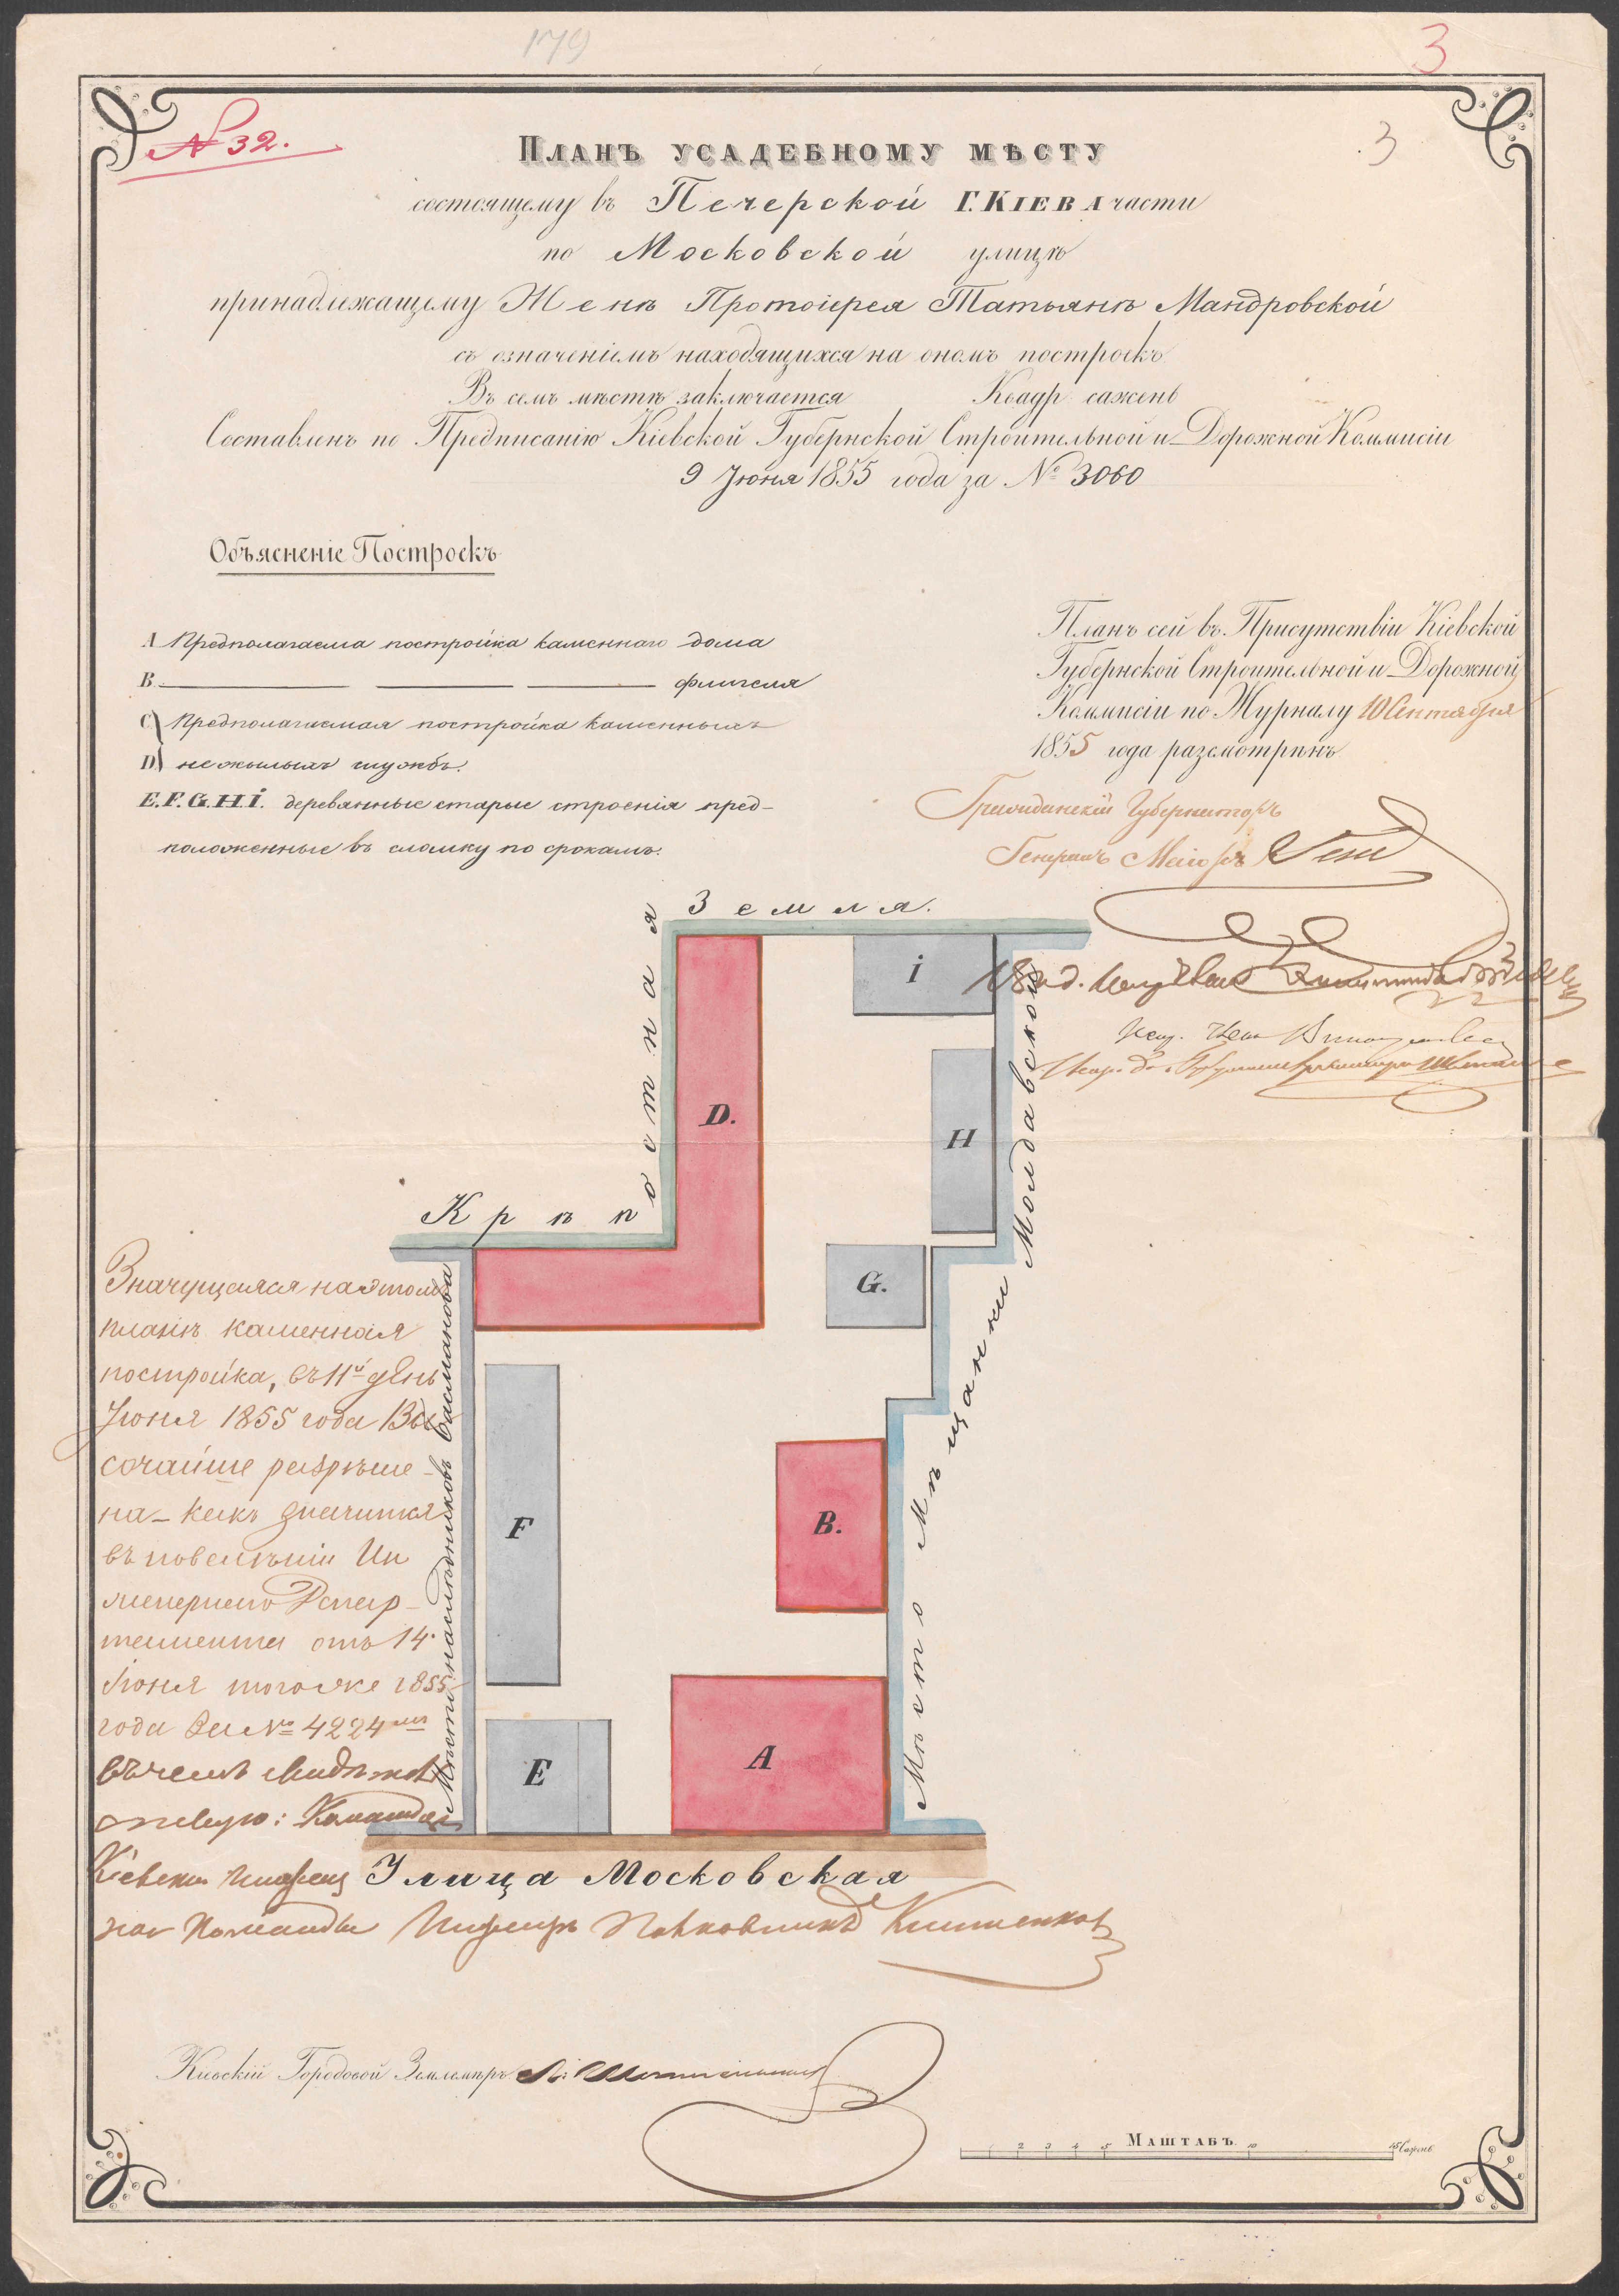 179
3
№ 32.
3
Планъ усадебному мѣсту
состоящему въ Печерской Г. Кіева части
по Московской улицѣ
принадлежащему Женѣ Протоіерея Татьянѣ Мандровской
съ означеніемъ находящихся на ономъ построекъ
Въ семъ мѣстѣ заключается Квадр. сажень
Составленъ по Предписанію Кіевской Губернской Строительной и Дорожной Коммисіи
9 Июня 1855 года за № 3060
Объясненіе Построекъ
A Предполагаема постройка каменнаго дома
B флигеля
C) Предполагаемая постройка каменныхъ
D) нежилыхъ службъ.
E. F. G. H. I. деревянные старые строенія пред-
положенные въ сломку по срокамъ.
Планъ сей въ Присутствіи Кіевской
Губернской Строительной и Дорожной
Коммисіи по Журналу 10 Сентября
1855 года разсмотрѣнъ
Гражданскій Губернаторъ
Генералъ Маіоръ
Крѣпостная Земля.
i
D.
H
G.
F
B.
E
A
Мѣсто Мѣщанки Молдавской
Мѣсто наслѣдниковъ Басманова
Значущаяся на этомъ
планѣ каменная
постройка, въ 11й день
Июня 1855 года Вы-
сочайше разрѣше-
на - какъ значится
въ повелѣніи Ин
женернаго Депар-
тамента отъ 14
Июня того же 1855
года за № 4224мъ
въ чемъ свидѣтель
ствую: Командиръ
Кіевской Инженер
ной Команды Инженеръ Полковникъ
Улица Московская
Кіевскій Городовой Землемѣръ
Маштабъ
2 3 4 5 10 15 Сажень